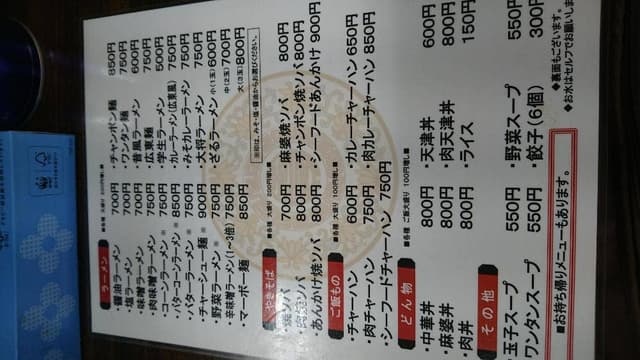 ラーメン ■各種 大盛り 200円増し■
・醤油ラーメン 700円 ・チャンポン麺 850円
・塩ラーメン 700円 ・ワンタン麺 750円
・味噌ラーメン 700円 ・昔風ラーメン 600円
・肉味噌ラーメン 750円 ・広東麺 750円
・コーンラーメン※ 750円 ・学生ラーメン 500円
・バターコーンラーメン※ 850円 ・カレーラーメン(広東風) 750円
・バターラーメン※ 750円 ・みそカレーラーメン 750円
・チャーシュー麺※ 900円 ・大将ラーメン 750円
・野菜ラーメン※ 750円 ・ざるラーメン 小(1玉)600円
・辛味噌ラーメン(1~3倍) 750円 中(2玉)700円
・マーボー麺 850円 大(3玉)800円
※印は、みそ・塩・醤油からお選びください。
やきそば ■各種 大盛り 100円増し■
・焼ソバ 700円 ・麻婆焼ソバ 800円
・肉焼ソバ 800円 ・チャンポン焼ソバ 800円
・あんかけ焼ソバ 800円 ・シーフードあんかけ 900円
ご飯もの ■各種 大盛り 100円増し■
・チャーハン 600円 ・カレーチャーハン 650円
・肉チャーハン 750円 ・肉カレーチャーハン 850円
・シーフードチャーハン 750円
どん物 ■各種 ご飯大盛り 100円増し■
・中華丼 800円 ・天津丼 600円
・麻婆丼 800円 ・肉天津丼 800円
・肉丼 800円 ・ライス 150円
その他
・玉子スープ 550円 ・野菜スープ 550円
・ワンタンスープ 550円 ・餃子(6個) 300円
■お持ち帰りメニューもあります。■
◆裏面もございます。
◆お水はセルフでお願いしま